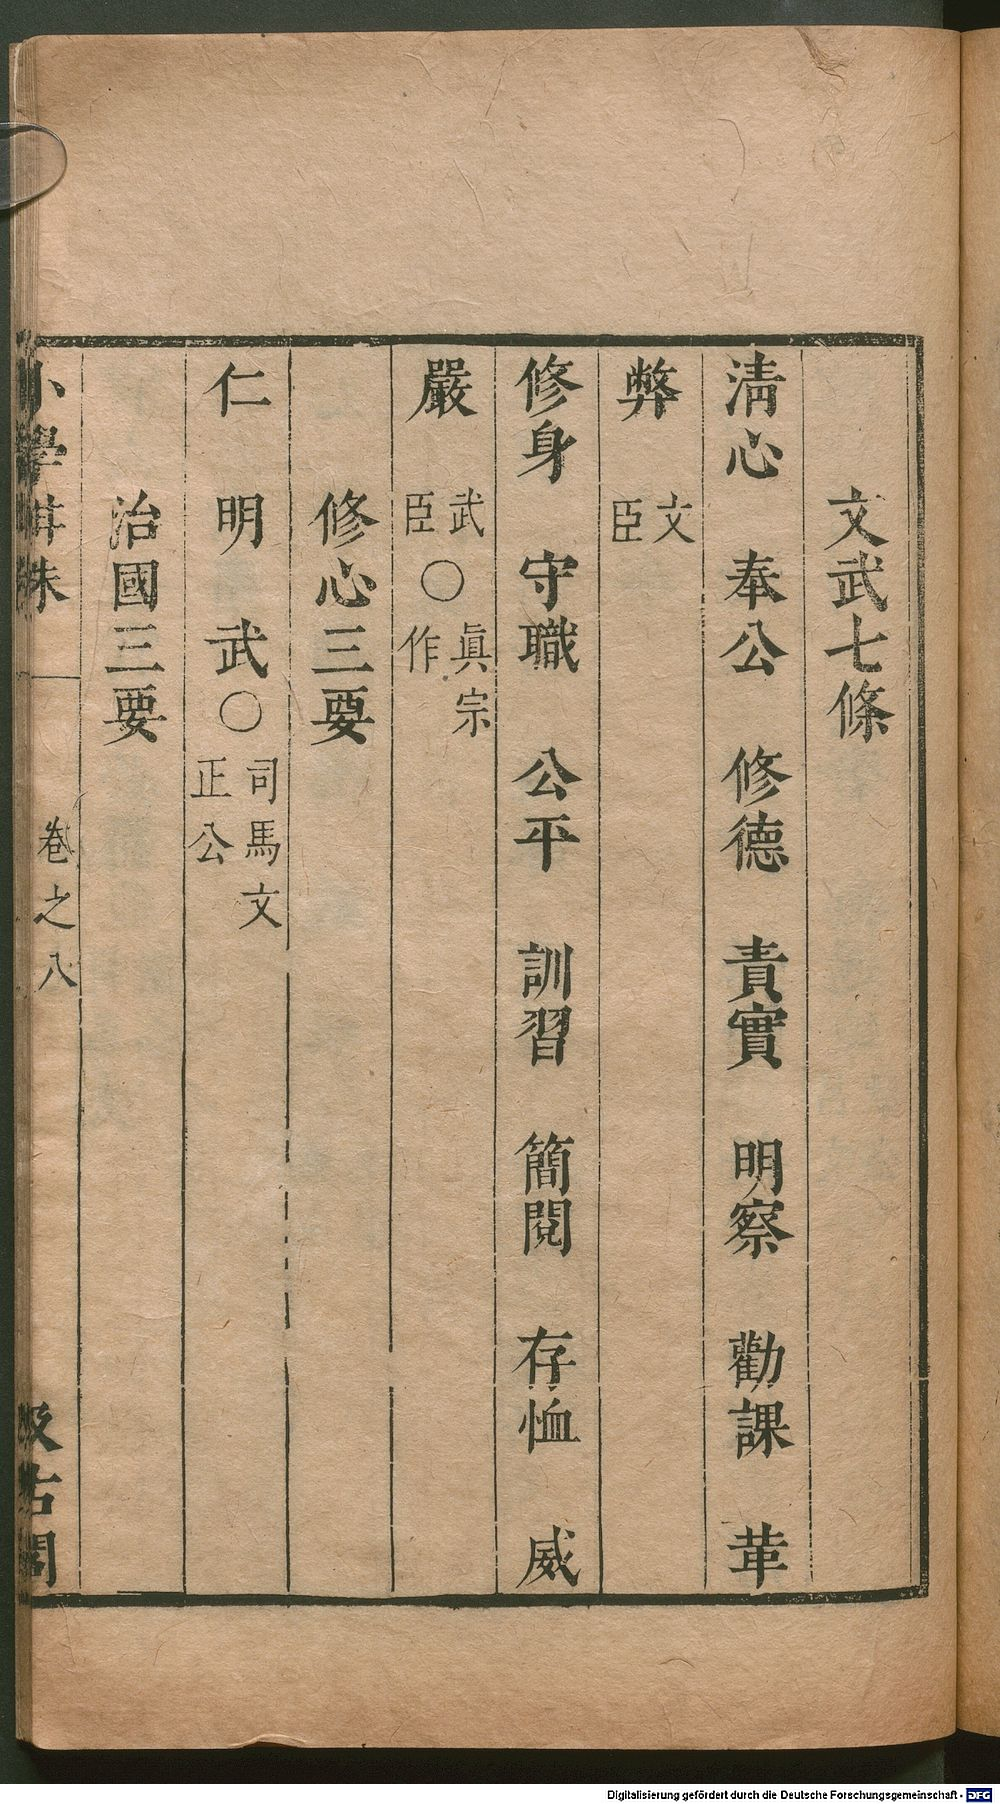 文武七條
淸心　奉公　修德　責實　明察　勸課　革
弊　文臣
修身　守職　公平　訓習　簡閱　存恤　威
嚴　武臣〇眞宗作
修心三要
仁　明　武〇司馬文正公
治國三要
小學紺珠　卷之八　汲古閣
Digitalisierung gefördert durch die Deutsche Forschungsgemeinschaft - DFG